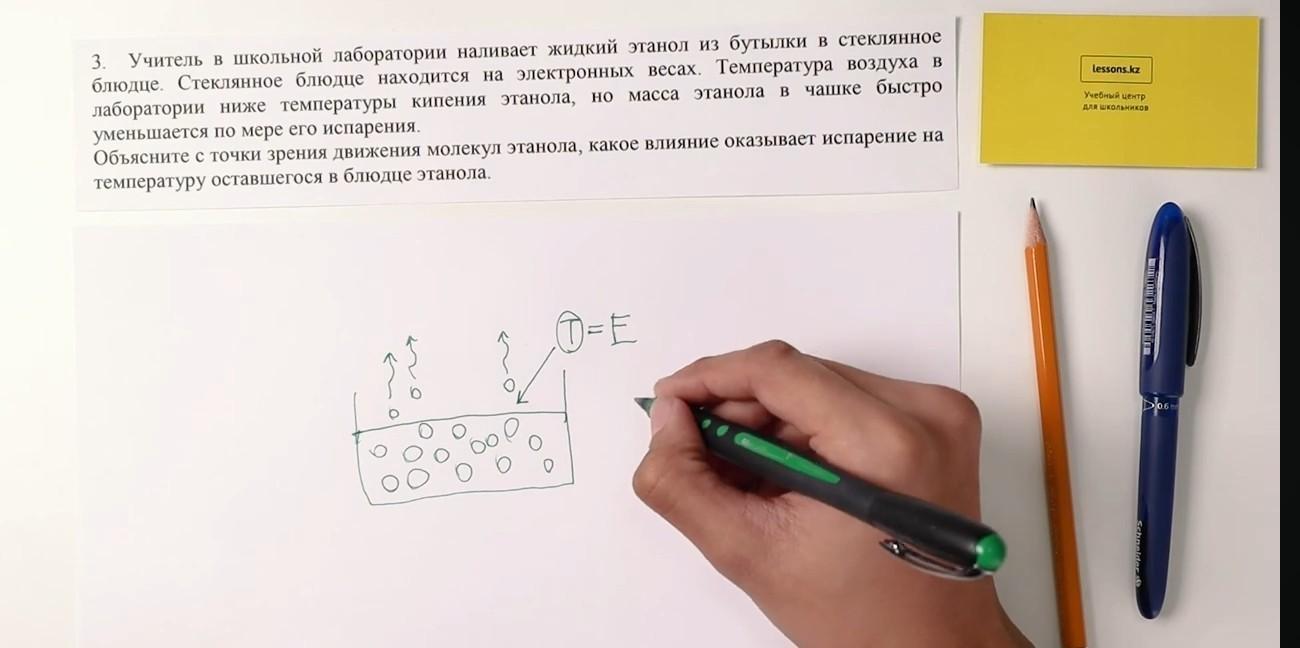 3. Учитель в школьной лаборатории наливает жидкий этанол из бутылки в стеклянное
блюдце. Стеклянное блюдце находится на электронных весах. Температура воздуха в
лаборатории ниже температуры кипения этанола, но масса этанола в чашке быстро
уменьшается по мере его испарения.
Объясните с точки зрения движения молекул этанола, какое влияние оказывает испарение на
температуру оставшегося в блюдце этанола.
lessons.kz
Учебный центр
для школьников
T = E
0.6
Schneider